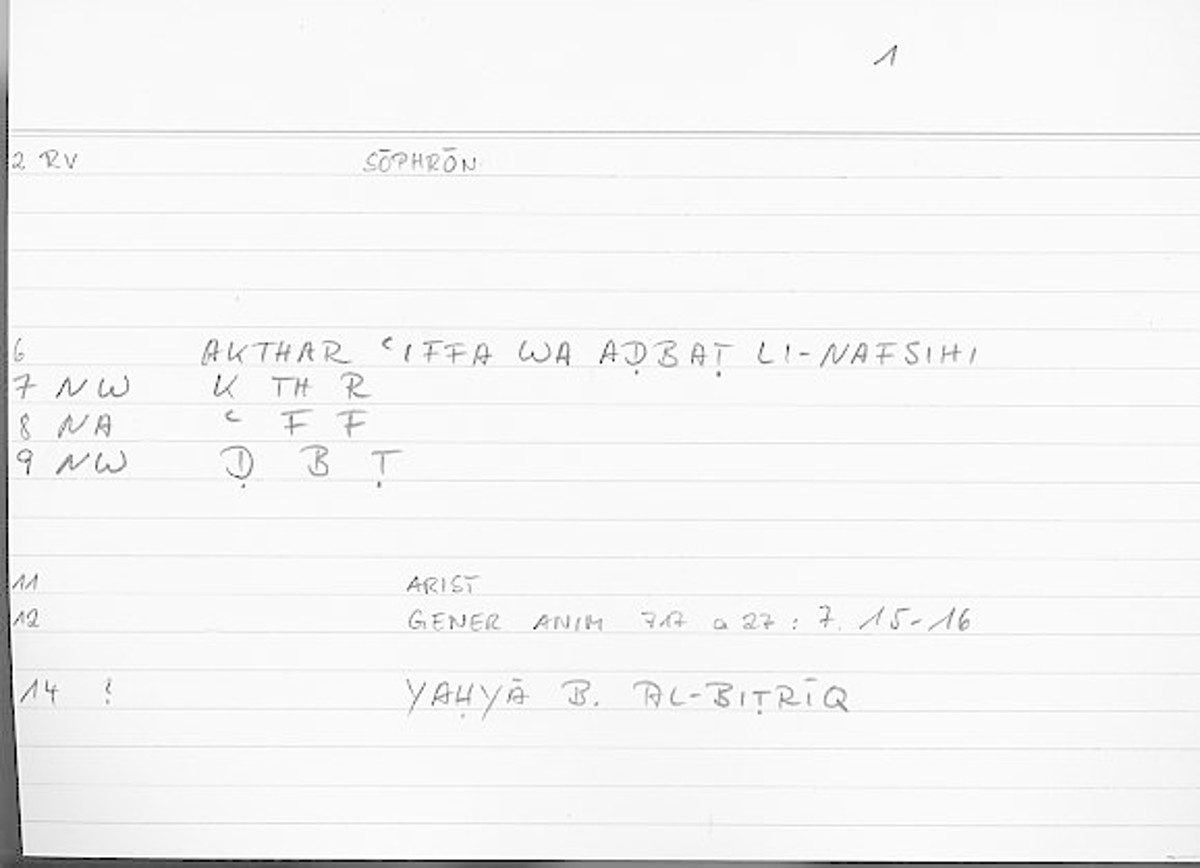 1
2 RV SŌPHRŌN
6 AKTHAR ʿIFFA WA AḌBAṬ LI-NAFSIHI
7 NW K TH R
8 NA ʿ F F
9 NW Ḍ B Ṭ
11 ARIST
12 GENER ANIM 717 a 27 : 7. 15-16
14 ? YAḤYĀ B. AL-BIṬRĪQ